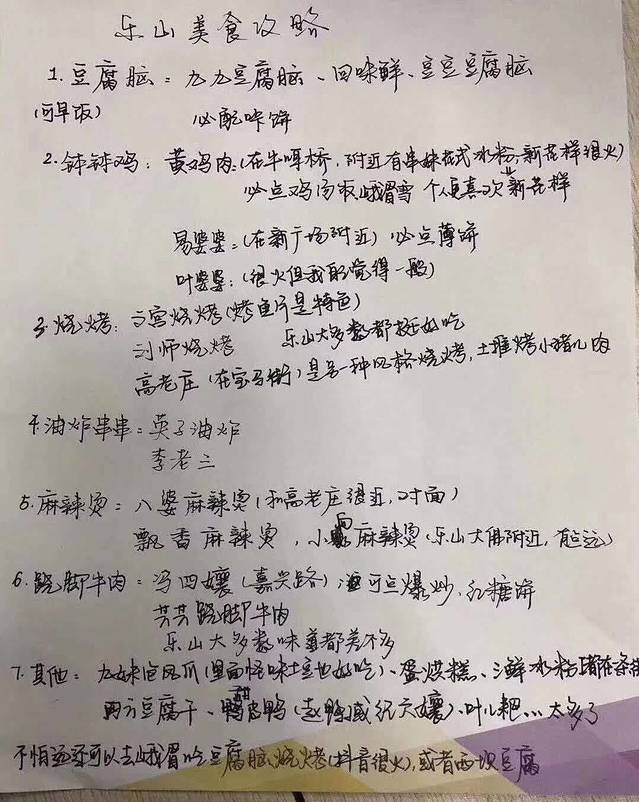 乐山美食攻略
1. 豆腐脑：九九豆腐脑、回味鲜、豆豆豆腐脑
(可早饭) 必配咔饼
2. 钵钵鸡：黄鸡肉：(在牛咡桥，附近有串妹花式冰粉，新花样很火)
必点鸡汤饭峨眉雪 个人更喜欢新花样
易婆婆：(在新广场附近) 必点薄饼
叶婆婆：(很火但我都觉得一般)
3. 烧烤：烧烤(烤鱼片是特色)
刘师烧烤 乐山大多数都挺好吃
高老庄 (在宝马街) 是另一种风格烧烤，土堆烤小猪儿肉
4. 油炸串串：英子油炸
李老三
5. 麻辣烫：八婆麻辣烫 (和高老庄很近，对面)
飘香麻辣烫，小麻辣烫 (乐山大佛附近，有点远)
6. 跷脚牛肉：冯四孃 (嘉兴路) 可点爆炒，红糖饼
芸芸跷脚牛肉
乐山大多数味道都差不多
7. 其他：九妹泡凤爪 (里面怪味土豆也好吃)、蛋烘糕、三鲜冰粉
两方豆腐干、甜皮鸭 (赵鸭或纪六孃)、叶儿粑…太多了
不怕远还可以去峨眉吃豆腐脑，烧烤(抖音很火)，或者西坝豆腐